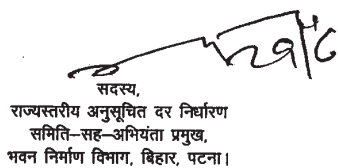 सदस्य,
राज्यस्तरीय अनुसूचित दर निर्धारण
समिति–सह–अभियंता प्रमुख,
भवन निर्माण विभाग, बिहार, पटना।